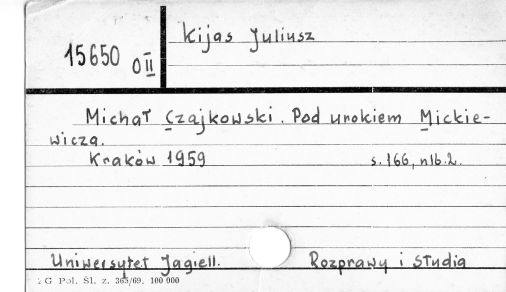 Kijas Juliusz
15650 OII
Michał Czajkowski. Pod urokiem Mickie-
wicza.
Kraków 1959 s. 166, nlb. 2.
Uniwersytet Jagiell. Rozprawy i studia
G Pol. Śl. z. 365/69. 100 000